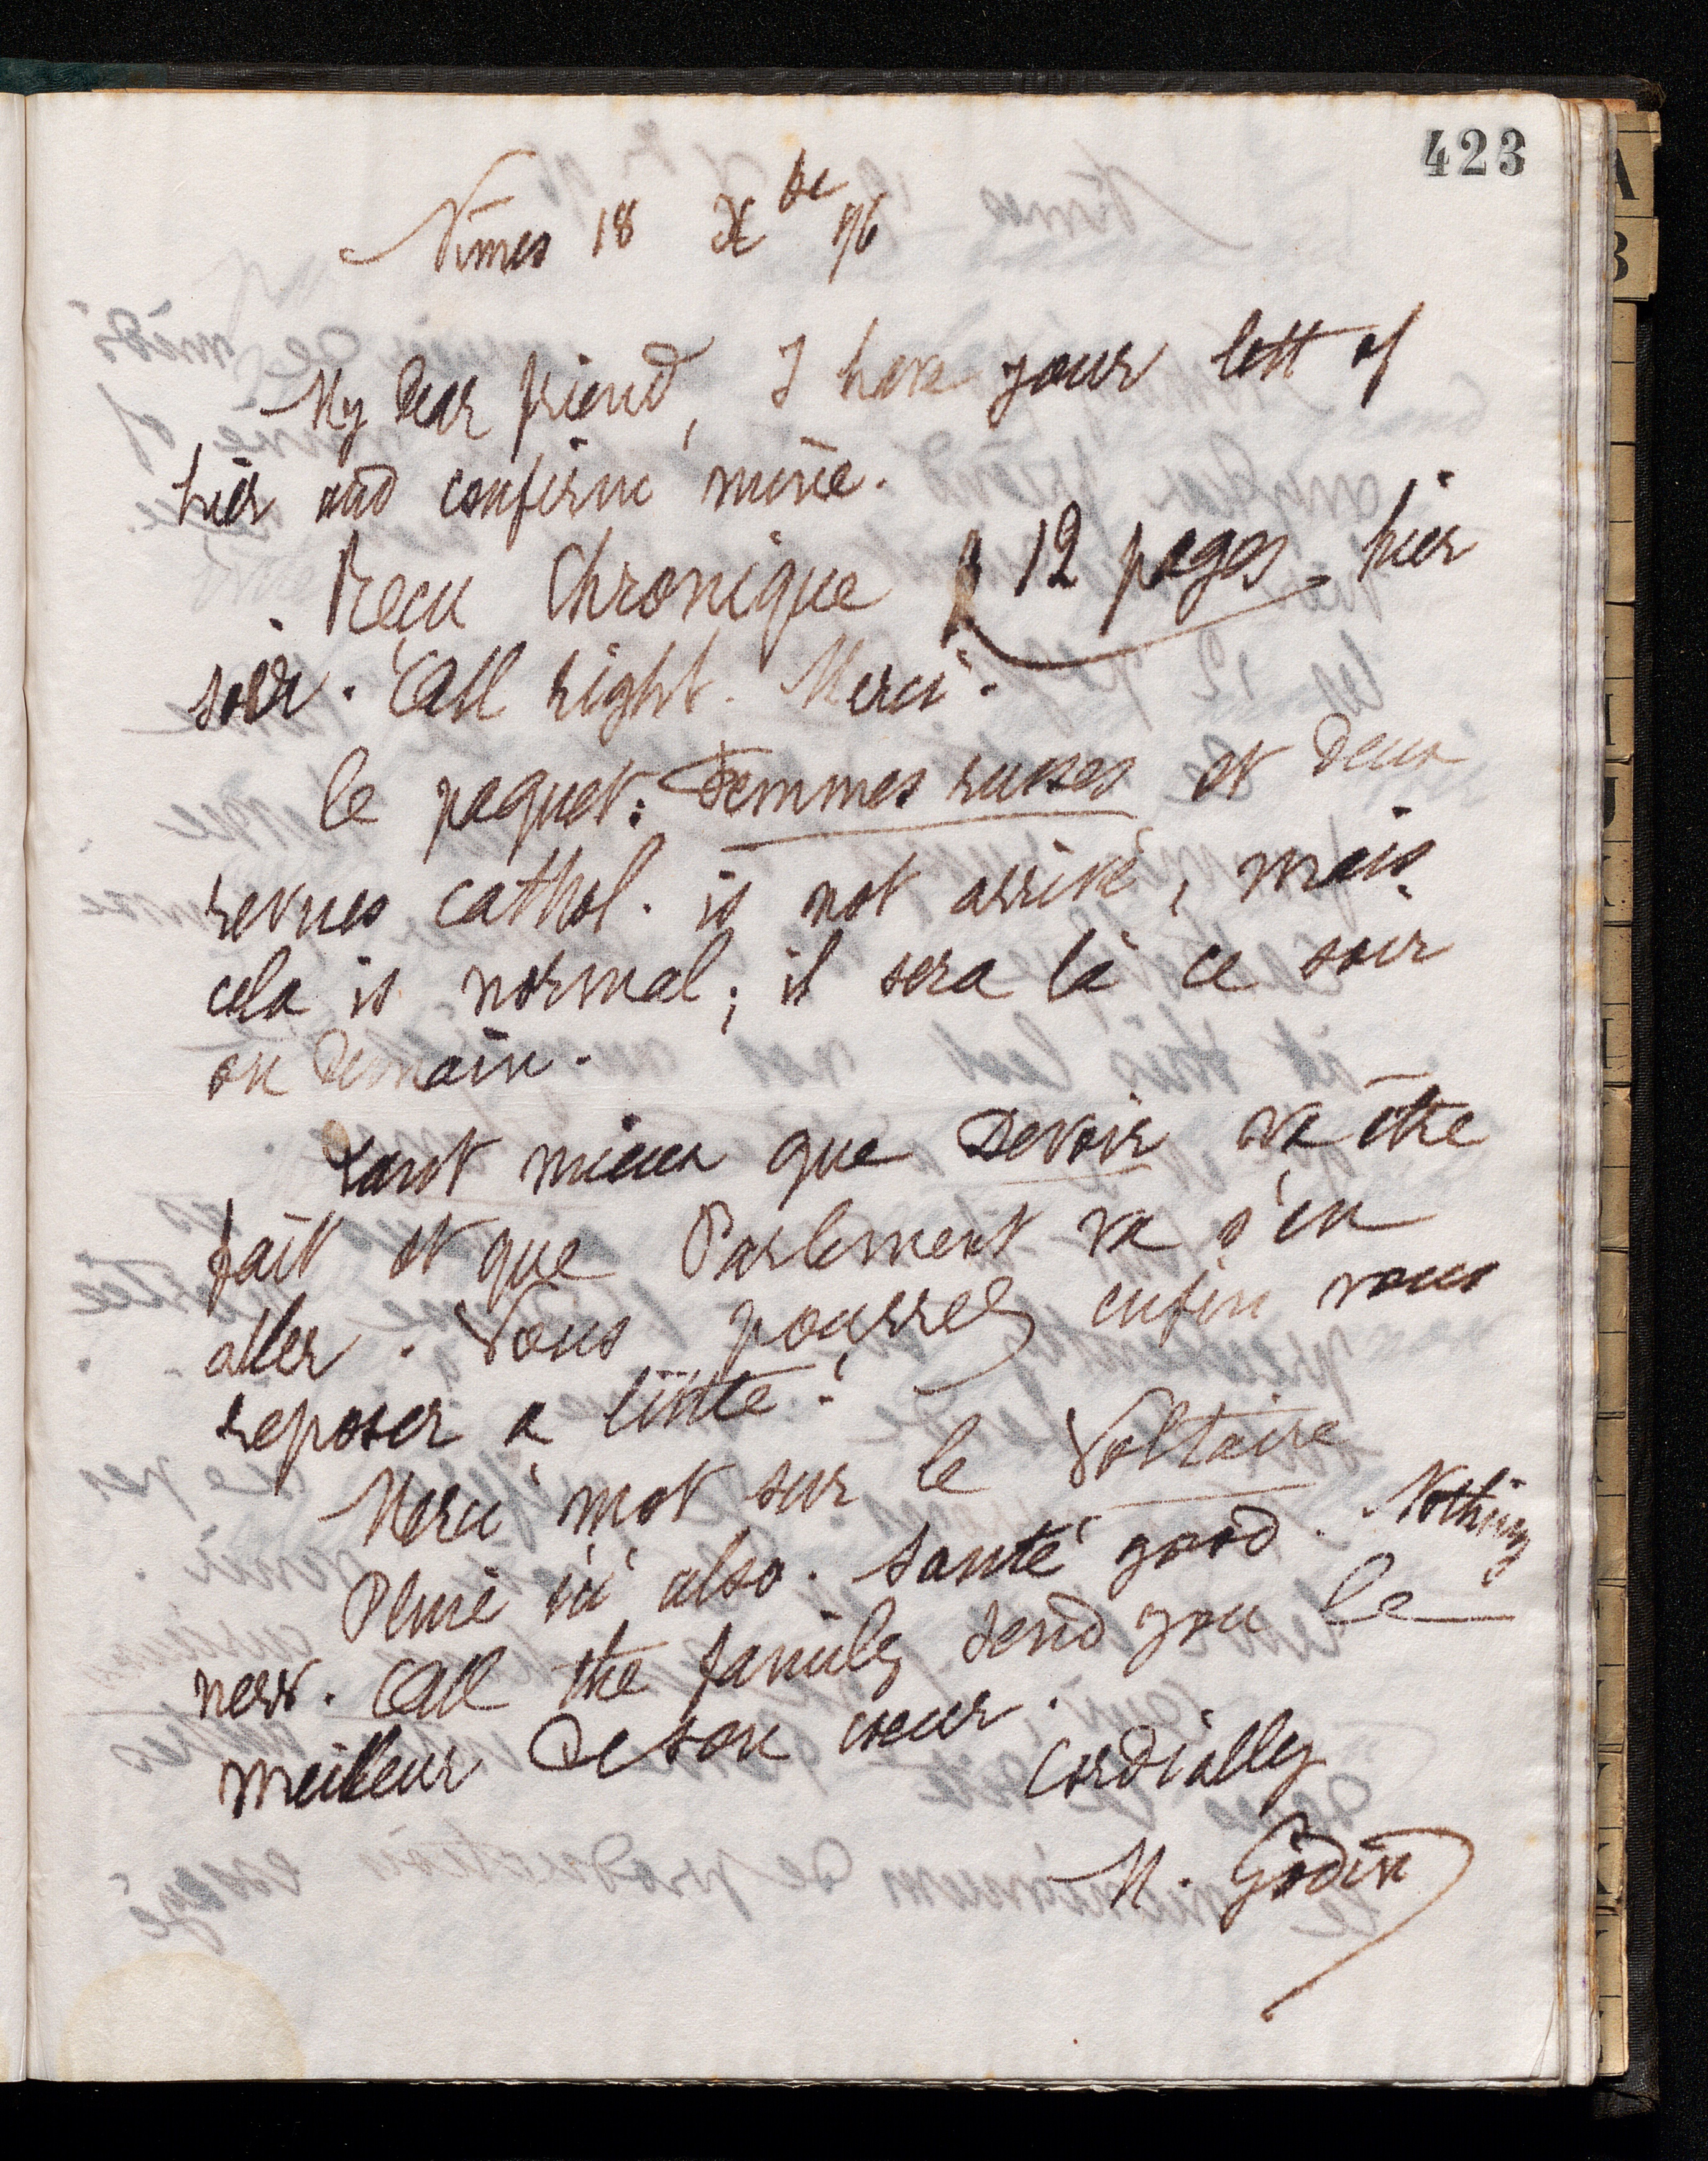 423
Nîmes 18 Xbre 96
My dear friend, I have your lett of
hier and confirm mine.
Reçu Chronique 12 pages hier
soir. All right. Merci.
le paquet: Femmes russes et deux
revues cathol. is not arrivé, mais
cela is normal; il sera là ce soir
ou demain.
tant mieux que Devoir va être
fait et que Parlement va s'en
aller. Vous pourrez enfin vous
reposer a little!
Merci mot sur le Voltaire
Pluie ici also. Santé good. Nothing
new. All the family send you le
meilleur de son coeur.
Cordially
M. Godin